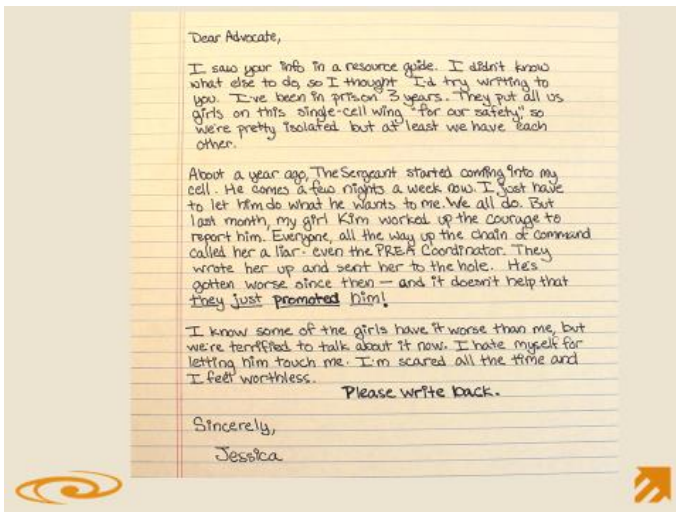 Dear Advocate,
I saw your info in a resource guide. I didn't know
what else to do, so I thought I'd try writing to
you. I've been in prison 3 years. They put all us
girls on this single-cell wing "for our safety," so
we're pretty isolated but at least we have each
other.
About a year ago, The Sergeant started coming into my
cell. He comes a few nights a week now. I just have
to let him do what he wants to me. We all do. But
last month, my girl Kim worked up the courage to
report him. Everyone, all the way up the chain of command
called her a liar - even the PREA Coordinator. They
wrote her up and sent her to the hole. He's
gotten worse since then — and it doesn't help that
they just promoted him!
I know some of the girls have it worse than me, but
we're terrified to talk about it now. I hate myself for
letting him touch me. I'm scared all the time and
I feel worthless.
Please write back.
Sincerely,
Jessica